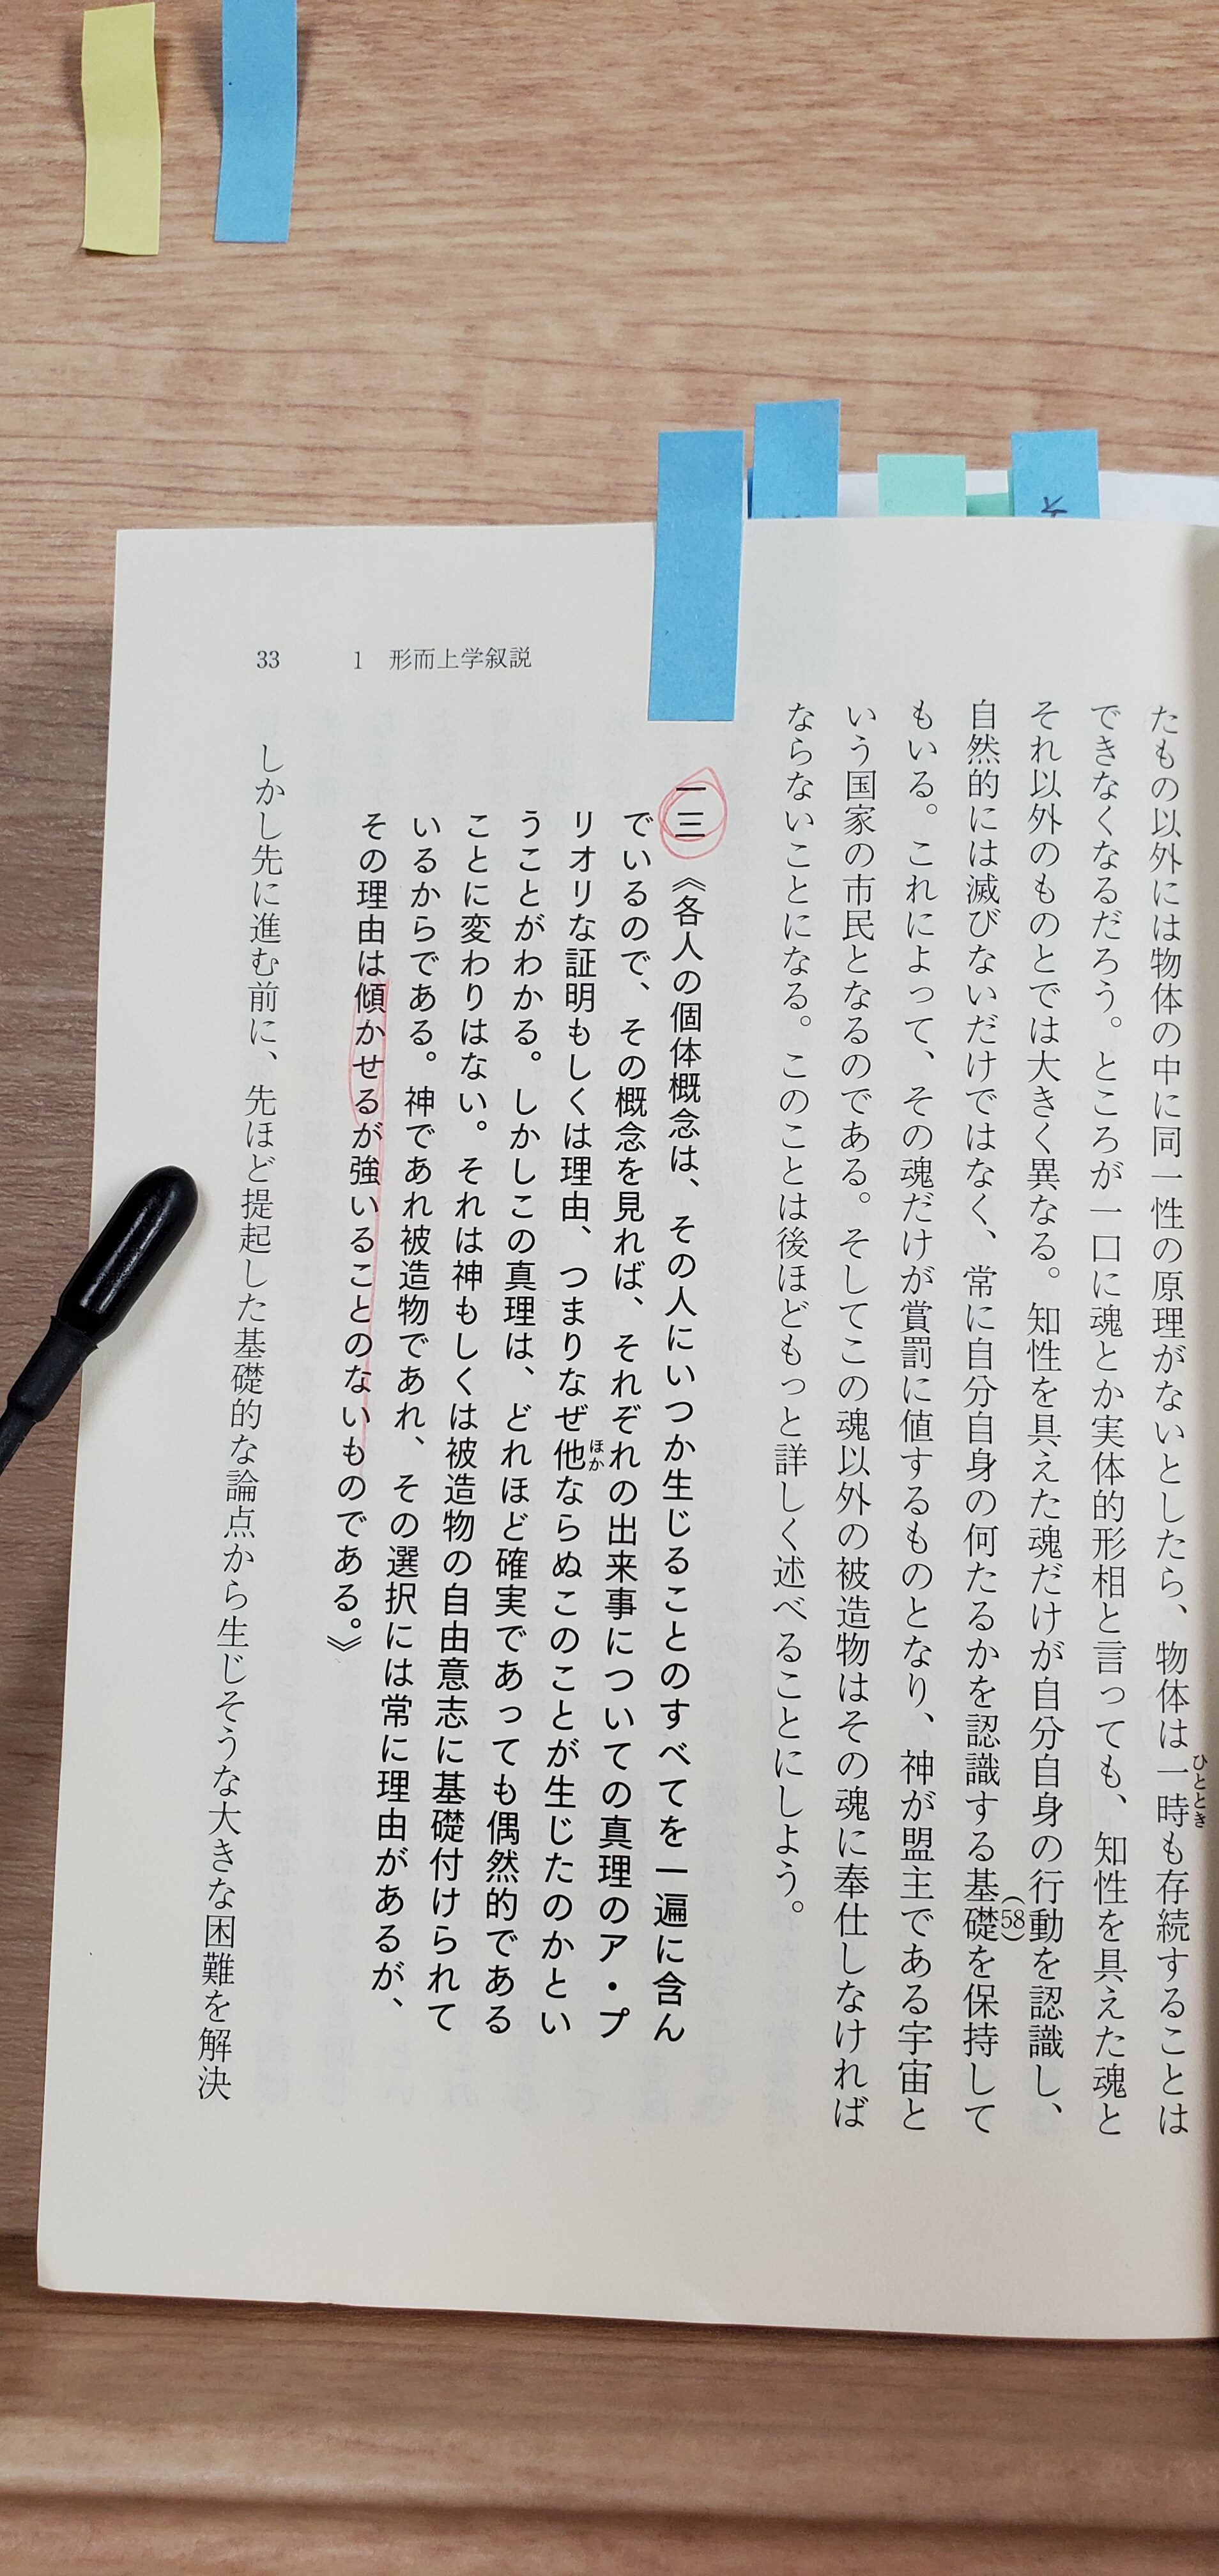 33
1 形而上学叙説
たもの以外には物体の中に同一性の原理がないとしたら、物体は一時も存続することは
ひととき
できなくなるだろう。ところが一口に魂とか実体的形相と言っても、知性を具えた魂と
それ以外のものとでは大きく異なる。知性を具えた魂だけが自分自身の行動を認識し、
自然的には滅びないだけではなく、常に自分自身の何たるかを認識する基礎を保持して
(58)
もいる。これによって、その魂だけが賞罰に値するものとなり、神が盟主である宇宙と
いう国家の市民となるのである。そしてこの魂以外の被造物はその魂に奉仕しなければ
ならないことになる。このことは後ほどもっと詳しく述べることにしよう。
一三 《各人の個体概念は、その人にいつか生じることのすべてを一遍に含ん
でいるので、その概念を見れば、それぞれの出来事についての真理のア・プ
リオリな証明もしくは理由、つまりなぜ他ならぬこのことが生じたのかとい
ほか
うことがわかる。しかしこの真理は、どれほど確実であっても偶然的である
ことに変わりはない。それは神もしくは被造物の自由意志に基礎付けられて
いるからである。神であれ被造物であれ、その選択には常に理由があるが、
その理由は傾かせるが強いることのないものである。》
しかし先に進む前に、先ほど提起した基礎的な論点から生じそうな大きな困難を解決